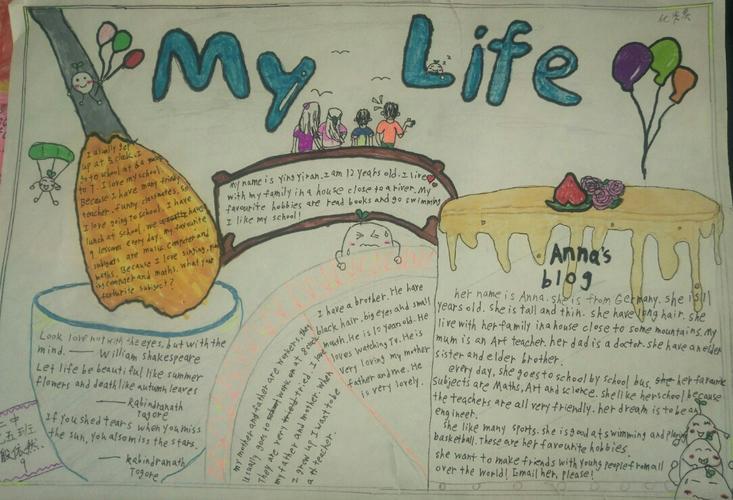 My Life
I usually get
up at 5 o'clock. I
go to school at 6
to 7. I love my school.
Because I have many friendly
teacher, funny classmates, so
I love going to school. I have
lunch at school. we have
9 lessons every day. my favourite
subjects are music computer and
maths. Because I love singing,
computer and maths. what your
favourite subject??
my name is Ying Yiran. I am 12 years old. I live
with my family in a house close to a river. My
favourite hobbies are read books and go swimming
I like my school!
Look love not with the eyes, but with the
mind. —— William shakespeare
Let life be beautiful like summer
flowers and death like autumn leaves
—— Rabindranath
Tagore
If you shed tears when you miss
the sun, you also miss the stars.
—— Rabindranath
Tagore
my mother and father are workers, they
usually goes to work on at 8 o'clock
They are very tried. I love
my father and mother. When
I grow up I want to be
a teacher.
I have a brother. He have
black hair, big eyes and small
mouth. He is 10 years old. He
loves watching TV. He is
very loving my mother
father and me. He
is very lovely.
Anna's
blog
her name is Anna. she is from Germany. she is 11
years old. she is tall and thin. she have long hair. she
live with her family in a house close to some mountains. My
mum is an Art teacher. her dad is a doctor. she have an elder
sister and elder brother.
every day, she goes to school by school bus. her favourite
subjects are Maths, Art and science. she like her school because
the teachers are all very friendly. her dream is to be an
engineer.
she like many sports. she is good at swimming and playing
basketball. These are her favourite hobbies.
she want to make friends with young people from all
over the world! Email her, please!